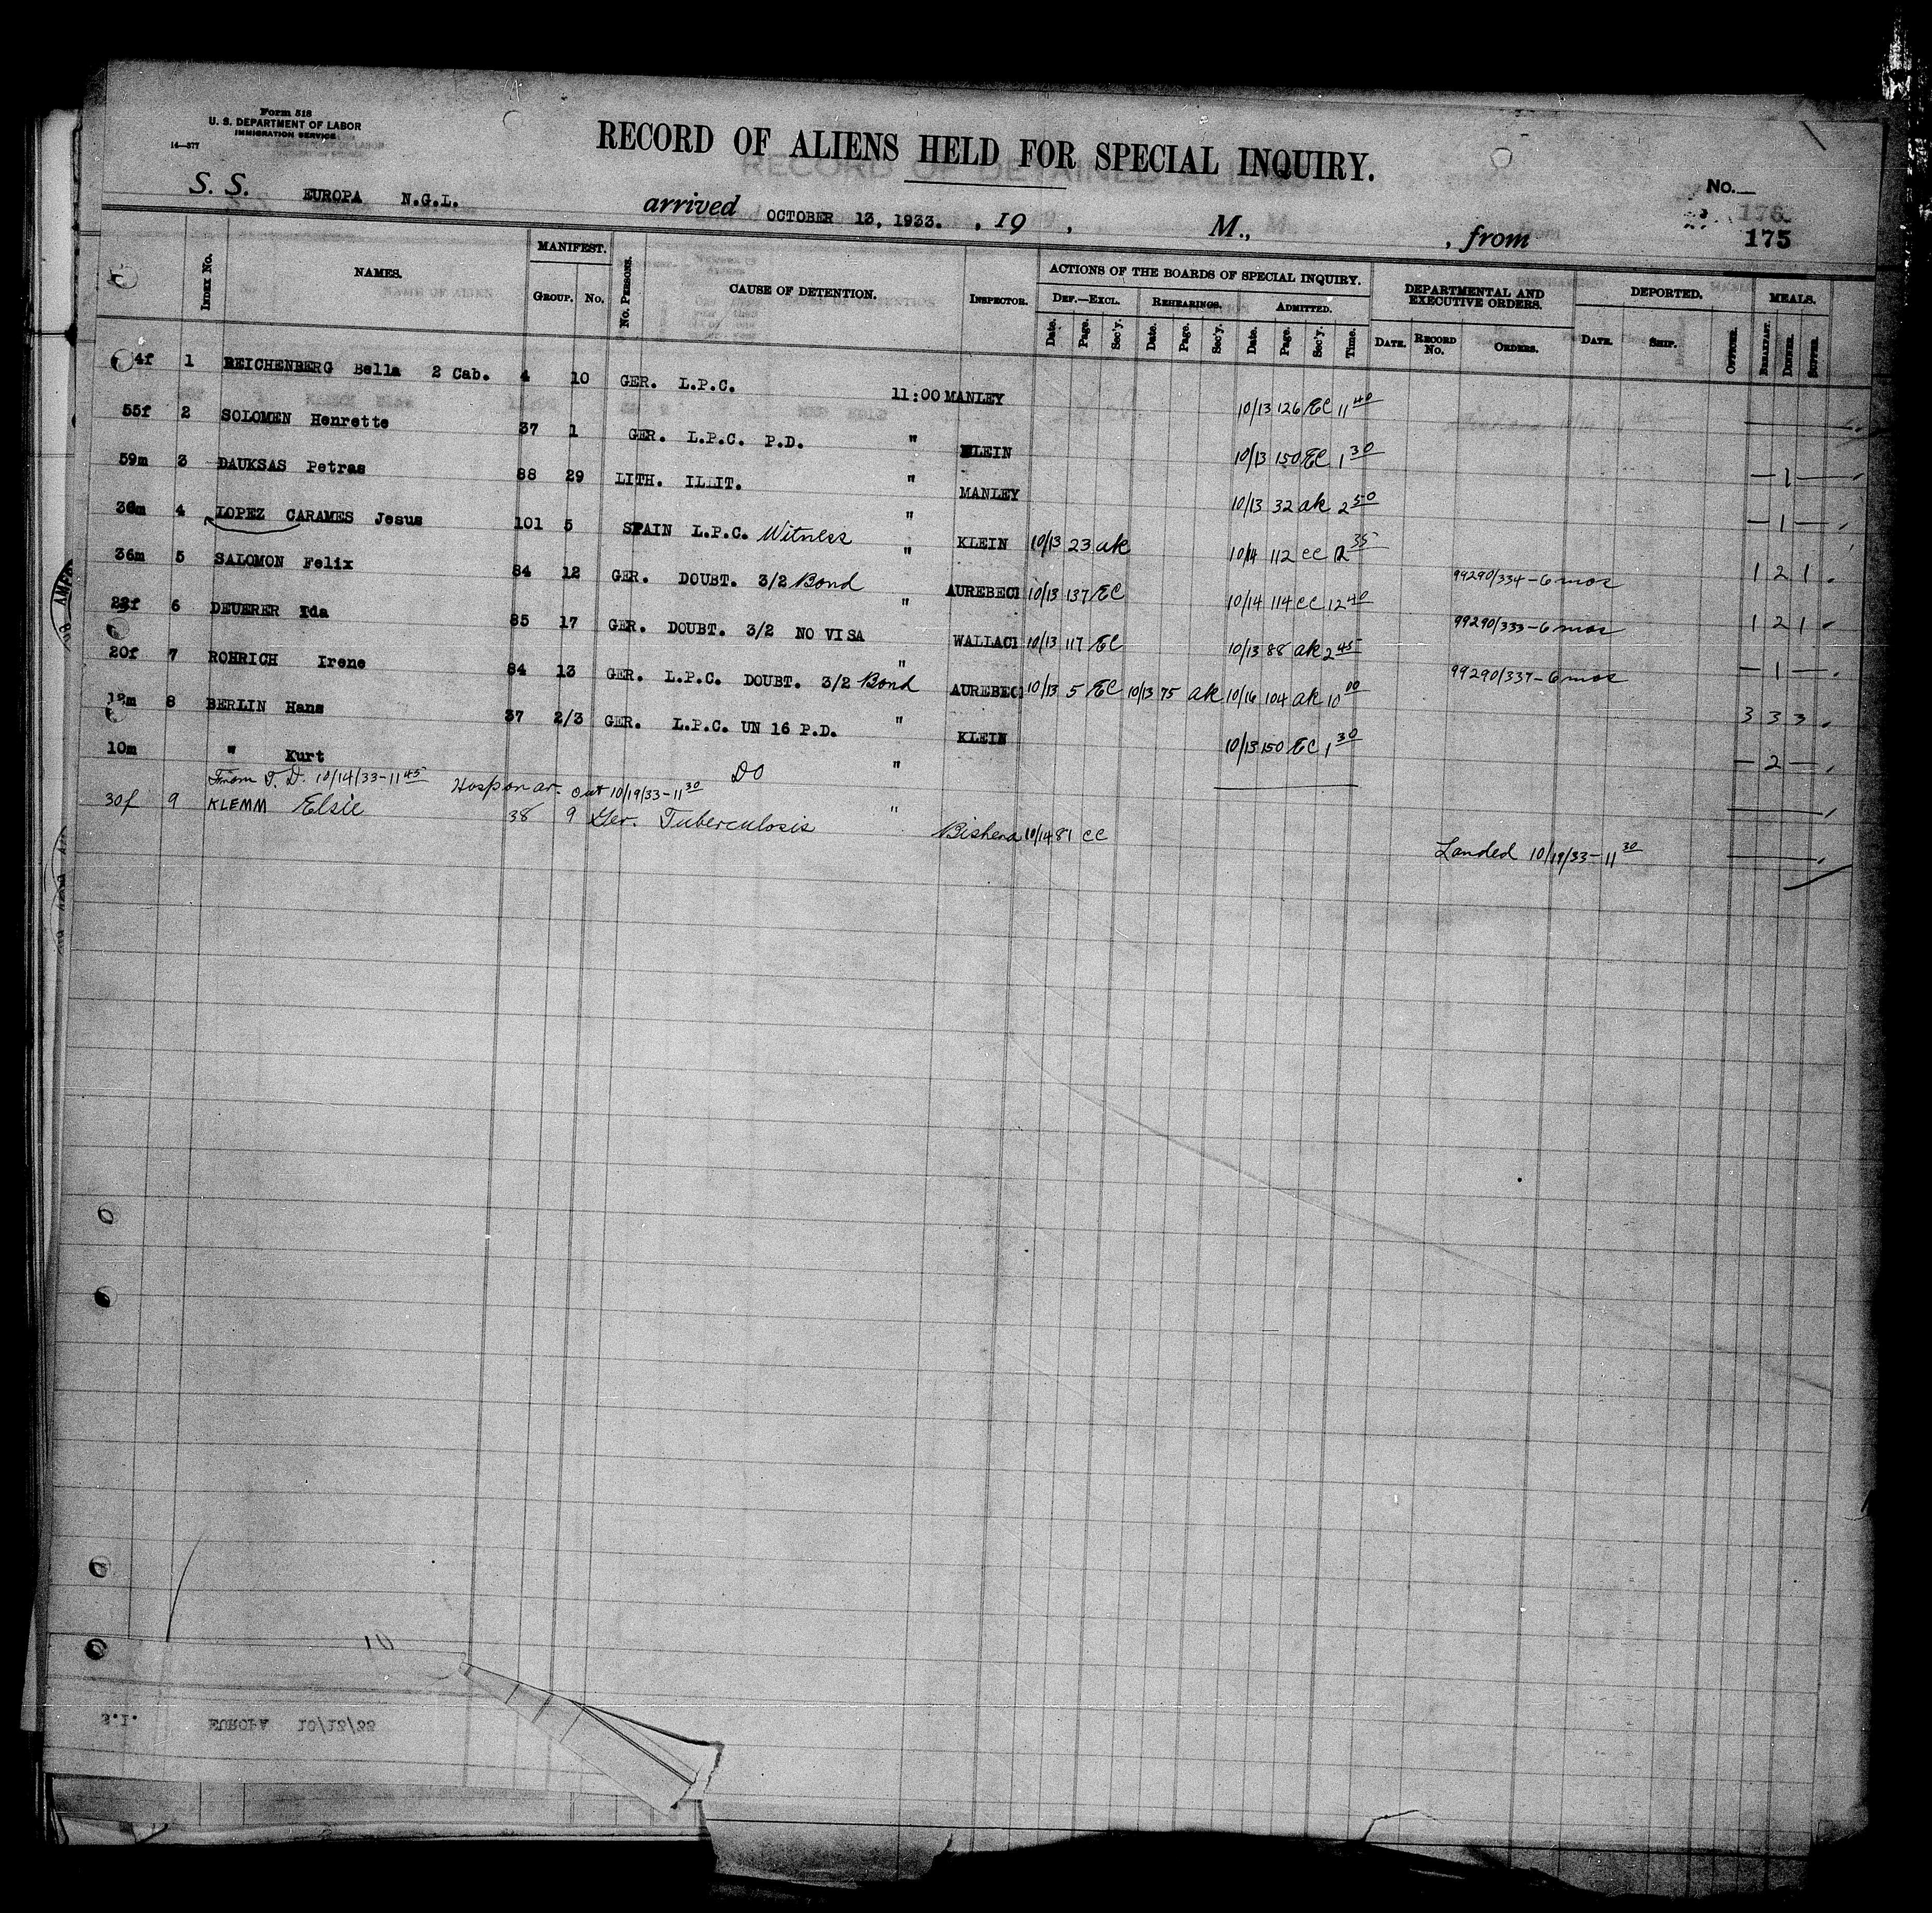 Form 518
U. S. DEPARTMENT OF LABOR
IMMIGRATION SERVICE
14—377
RECORD OF ALIENS HELD FOR SPECIAL INQUIRY.
No.
176
175
S. S. EUROPA N.G.L. arrived OCTOBER 13, 1933. , 19 , M., , from
INDEX No. NAMES. MANIFEST. GROUP. No. No. PERSONS. CAUSE OF DETENTION. INSPECTOR. ACTIONS OF THE BOARDS OF SPECIAL INQUIRY. DEF.—EXCL. Date. Page. Sec'y. REHEARINGS. Date. Page. Sec'y. ADMITTED. Date. Page. Sec'y. Time. DEPARTMENTAL AND EXECUTIVE ORDERS. DATE. RECORD No. ORDERS. DEPORTED. DATE. SHIP. OFFICER. MEALS. BREAKFAST. DINNER. SUPPER.
4f 1 REICHENBERG Bella 2 Cab. 4 10 GER. L.P.C. 11:00 MANLEY 10/13 126 EC 11 40
55f 2 SOLOMEN Henrette 37 1 GER. L.P.C. P.D. " KLEIN 10/13 150 EC 1 30 — 1 —
59m 3 DAUKSAS Petras 88 29 LITH. ILLIT. " MANLEY 10/13 32 ak 2 50 — 1 —
36m 4 LOPEZ CARAMES Jesus 101 5 SPAIN L.P.C. Witness " KLEIN 10/13 23 ak 10/14 112 CC 12 35 1 2 1
36m 5 SALOMON Felix 84 12 GER. DOUBT. 3/2 Bond " AUREBECI 10/13 137 EC 10/14 114 CC 12 40 99290/334-6 mos 1 2 1
22f 6 DEUERER Ida 85 17 GER. DOUBT. 3/2 NO VISA " WALLACI 10/13 117 EC 10/13 88 ak 2 45 99290/333-6 mos — 1 —
20f 7 ROHRICH Irene 84 13 GER. L.P.C. DOUBT. 3/2 Bond " AUREBECI 10/13 5 EC 10/13 75 ak 10/16 104 ak 10 00 99290/337-6 mos 3 3 3
12m 8 BERLIN Hans 37 2/3 GER. L.P.C. UN 16 P.D. " KLEIN 10/13 150 EC 1 30 — 2 —
10m " Kurt DO "
From T. D. 10/14/33-11 45 Hosp on ar. out 10/19/33-11 30
30f 9 KLEMM Elsie 38 9 Ger. Tuberculosis " 10/14 81 CC Landed 10/19/33-11 30
S.I. EUROPA 10/13/33